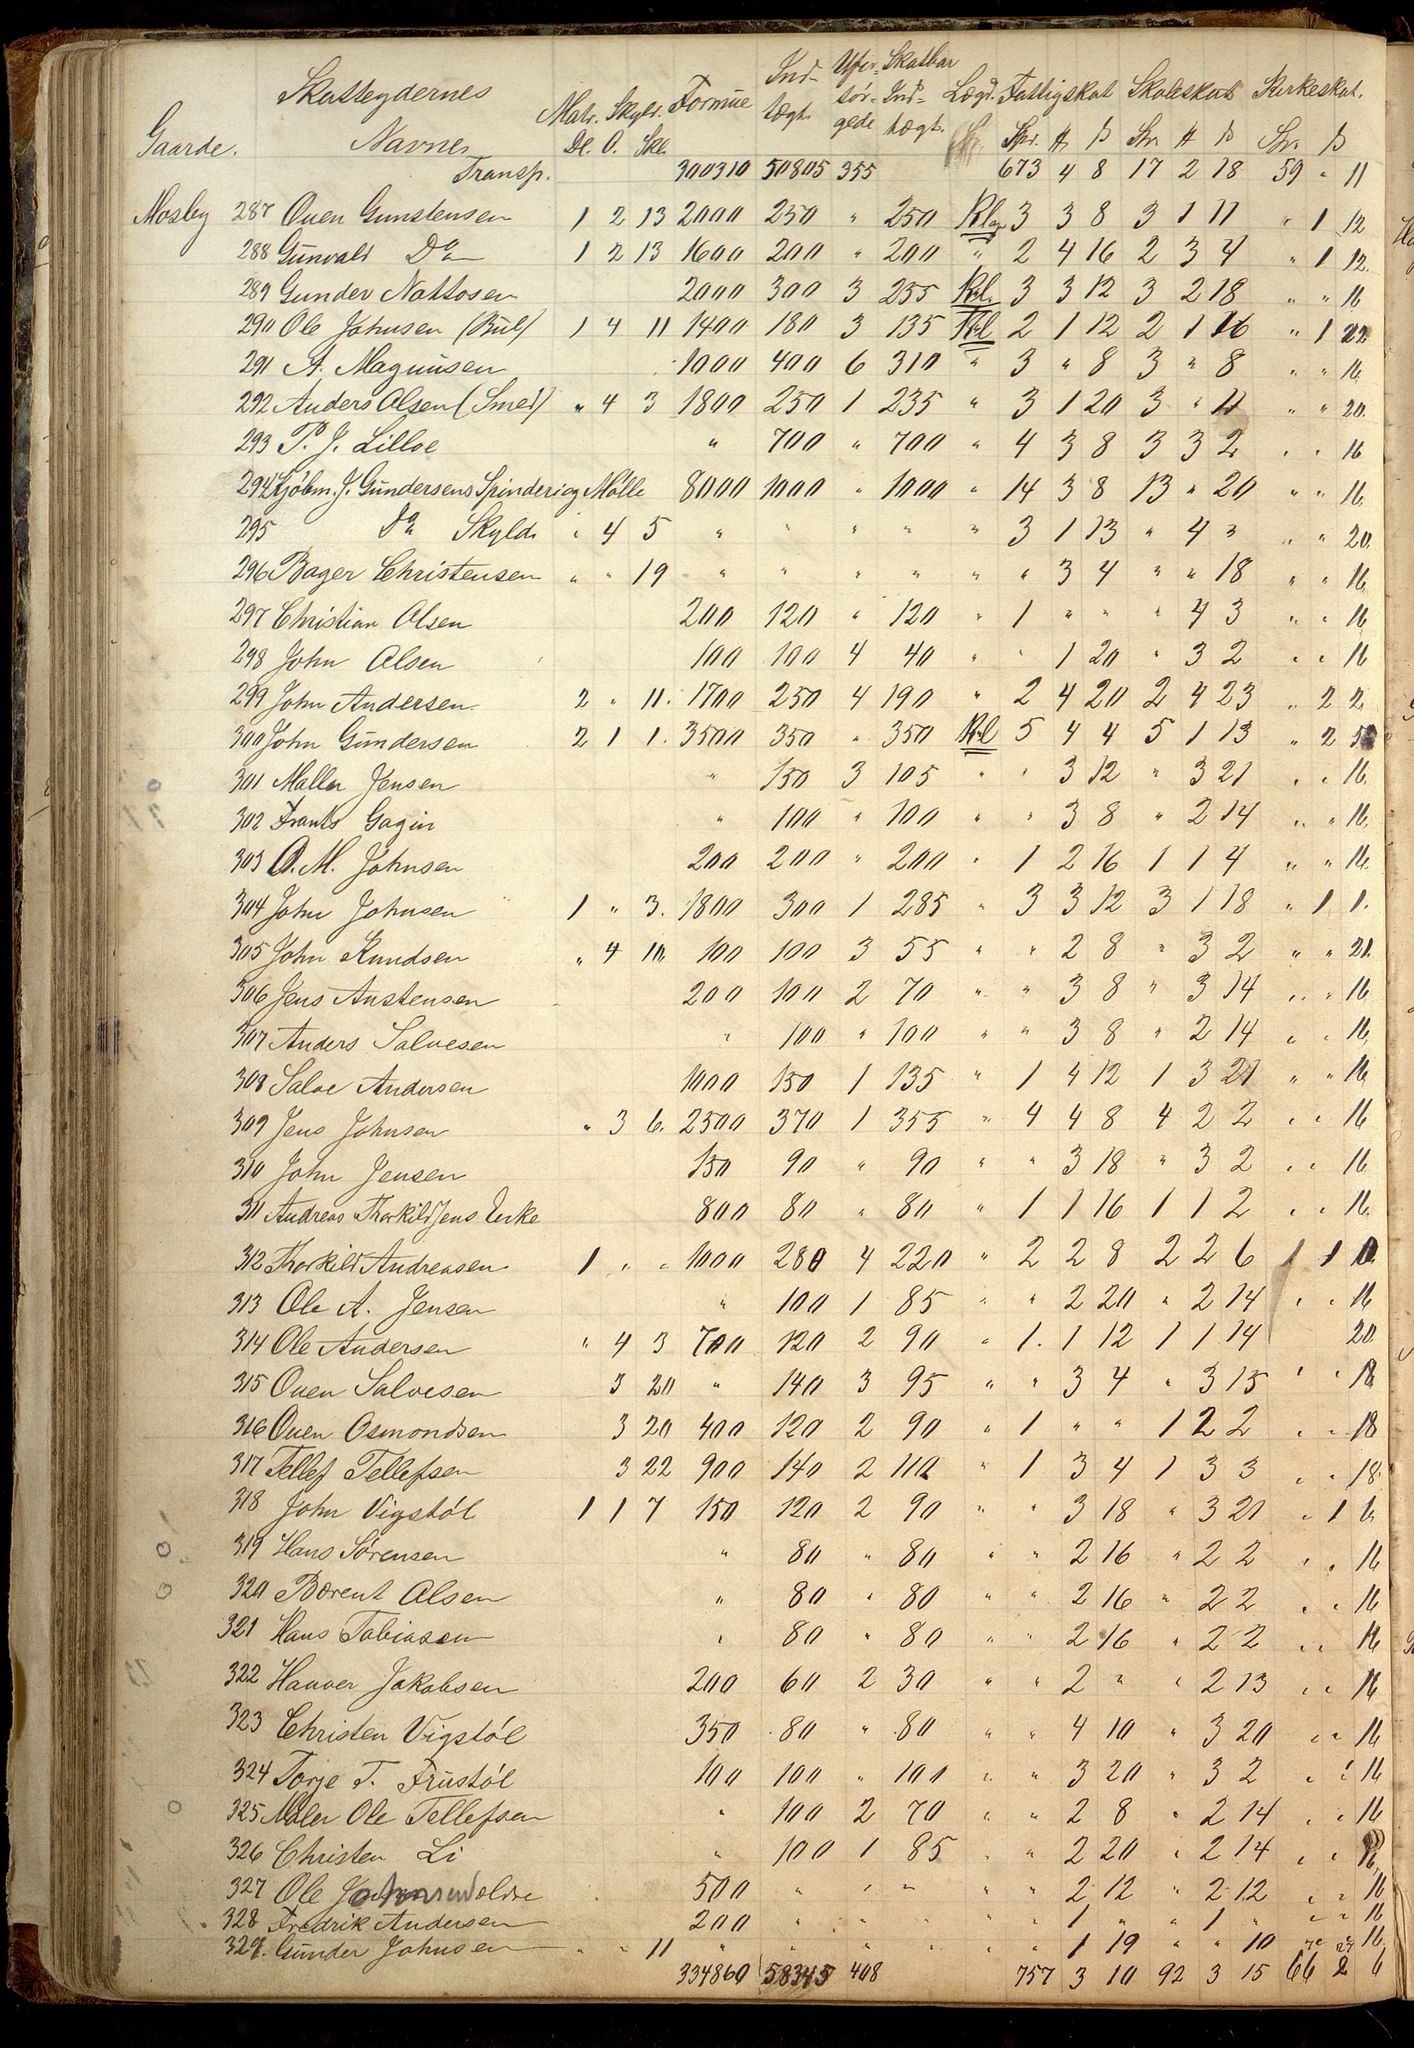 Gaarde. Skatteydernes Navne Matr. Skyld. Dl. O. Skl. Formue Ind- tægt. Ufor- sør- gede Skatbar Ind- tægt. Lægd. Fattigskat Skoleskat Kirkeskat.
Spr. # ß Spr. # ß Spr. ß
Transp. 300310 50805 355 673 4 8 17 2 18 59 " 11
Mosby 287 Ouen Gunstensen 1 2 13 2000 250 " 250 3 3 8 3 1 11 " 1 12
288 Gunvald Do 1 2 13 1600 200 " 200 " 2 4 16 2 3 4 " 1 12.
289 Gunder Nattosen 2000 300 3 255 Rl. 3 3 12 3 2 18 " " 16
290 Ole Johnsen (Bul) 1 4 11 1400 180 3 135 Rl 2 1 12 2 1 16 " 1 22
291 A. Magnusen 1000 400 6 310 " 3 " 8 3 " 8 " " 16
292 Anders Olsen (Smed) " 4 3 1800 250 1 235 " 3 1 20 3 " 11 " " 20.
293 P. J. Lilloe " 700 " 700 " 4 3 8 3 3 2 " " 16
294 Kjøbm. J. Gundersens Spinderi og Mølle 8000 1000 " 1000 " 14 3 8 13 " 20 " " 16
295 Do Skyld. " 4 5 " " " " " 3 1 13 " 4 " " " 20.
296 Bager Christensen " " 19 " " " " " " 3 4 " " 18 " " 16
297 Christian Olsen 200 120 " 120 " 1 " " " 4 3 " " 16
298 John Olsen 100 100 4 40 " " 1 20 " 3 2 " " 16
299 John Andersen 2 " 11. 1700 250 4 190 " 2 4 20 2 4 23 " 2 2.
300 John Gundersen 2 1 1. 3500 350 " 350 Rl 5 4 4 5 1 13 " 2 5
301 Maller Jensen " 150 3 105 " " 3 12 " 3 21 " " 16
302 Frants Gagin " 100 " 100 " " 3 8 " 2 14 " " 16
303 O. M. Johnsen 200 200 " 200 " 1 2 16 1 1 4 " " 16
304 John Johnsen 1 " 3. 1800 300 1 285 " 3 3 12 3 1 18 " 1 1.
305 John Knudsen " 4 10. 100 100 3 55 " " 2 8 " 3 2 " " 21.
306 Jens Austensen 200 100 2 70 " " 3 8 " 3 14 " " 16
307 Anders Salvesen " 100 " 100 " " 3 8 " 2 14 " " 16
308 Salve Andersen 1000 150 1 135 " 1 4 12 1 3 21 " " 16
309 Jens Johnsen " 3 6. 2500 370 1 355 " 4 4 8 4 2 2 " " 16
310 John Jensen 150 90 " 90 " " 3 18 " 3 2 " " 16
311 Andreas Thorkildsens Enke 800 80 " 80 " 1 1 16 1 1 2 " " 16
312 Thorkild Andreasen 1 " " 1000 280 4 220 " 2 2 8 2 2 6 1 1 0
313 Ole A. Jensen " 100 1 85 " " 2 20 " 2 14 " " 16
314 Ole Andersen " 4 3 700 120 2 90 " 1. 1 12 1 1 14 20.
315 Ouen Salvesen 3 20 " 140 3 95 " " 3 4 " 3 15 " " 18
316 Ouen Osmondsen 3 20 400 120 2 90 " 1 " " 1 2 2 " " 18
317 Tellef Tellefsen 3 22 900 140 2 110 " 1 3 4 1 3 3 " " 18
318 John Vigstöl 1 1 7 150 120 2 90 " " 3 18 " 3 20 " 1 6
319 Hans Sörensen " 80 " 80 " " 2 16 " 2 2 " " 16
320 Børent Olsen " 80 " 80 " " 2 16 " 2 2 " " 16
321 Hans Tobiasen " 80 " 80 " " 2 16 " 2 2 " " 16
322 Hauver Jakobsen 200 60 2 30 " " 2 " " 2 13 " " 16
323 Christen Vigstöl 350 80 " 80 " " 4 10 " 3 20 " " 16
324 Torje T. Frustöl 100 100 " 100 " " 3 20 " 3 2 " " 16
325 Maler Ole Tellefsen " 100 2 70 " " 2 8 " 2 14 " " 16
326 Christen Li " 100 1 85 " " 2 20 " 2 14 " " 16
327 Ole Johnsen ældre 500 " " " " " 2 12 " 2 12 " " 16
328 Fredrik Andersen 200 " " " " " 1 " " 1 " " " 16
329. Gunder Johnsen " " 11 " " " " " " 1 19 " " 10 " " 16
334860 58345 408 757 3 10 92 3 15 66 2 6